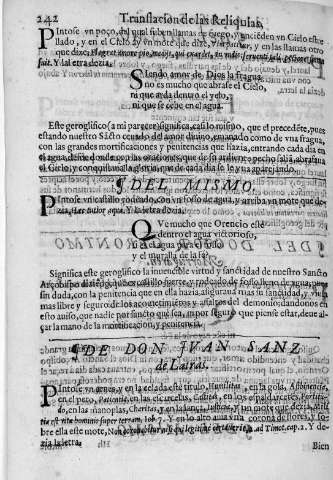 242 Translacion de las Reliquias,
Pintose vn poço, del qual suben llamas de fuego, y encienden vn Cielo estre
llado, y en el Cielo ay vn mote que dize, y en las llamas otro
que dize,
suit. Y la letra dezia.
Siendo amor de Dios la fragua
no es mucho que abrase el Cielo,
ni que arda dentro el yelo
ni que se cebe en el agua.
Este geroglifico (a mi parecer) significa, casi lo mismo, que el precedẽte, pues
estando nuestro Sãcto del amor diuino, como de vna fragua,
con las grandes mortificaciones y penitencias que hazia, entrando cada dia en
el agua, desde donde con las oraciones, que de su ardiente pecho salia, abrasaua
el Cielo, y conquistaua la gloria, que cada dia se le yua acercando.
¶ DEL MISMO.
Pintose vn castillo rodeado, con vn fosso de agua, y arriba vn mote que de-
zia, Hac tutior aqua. Y la letra dezia.
Que mucho que Orencio esté
dentro el agua victorioso,
si es el agua
y el muralla de la fé?
Significa este geroglifico la inuencible virtud y sanctidad de nuestro Sancto
fuerte, y rodeado de fosso lleno de agua, pues
sin duda, con la penitencia que en ella hazia,
mas libre y seguro de los acometimientos y assaltos del demonio, dandonos en
esto auiso, que nadie por sancto que sea, ni por seguro que piense estar, deue al-
çar la mano de la mortificacion, y penitencia.
¶ DE DON IVAN SANZ
de Latras.
Pintose vn arnes, y en la celada este titulo, Humilitas, en la gola,
en el peto, Patientia, en las escarcelas, Castitas, en los espaldarceres, Fortitu-
do, en las manoplas, Charitas, y en la lança, Iustitia, y vn mote que dezia, Mili
tia est vita hominis super terram, Iob. 7. Y en lo alto auia vna corona de flores, y so-
bre ella este mote, Non coronabitur nisi qui legitime certauerit, ad Timot. cap. 2. Y de-
zia la letra.
Bien